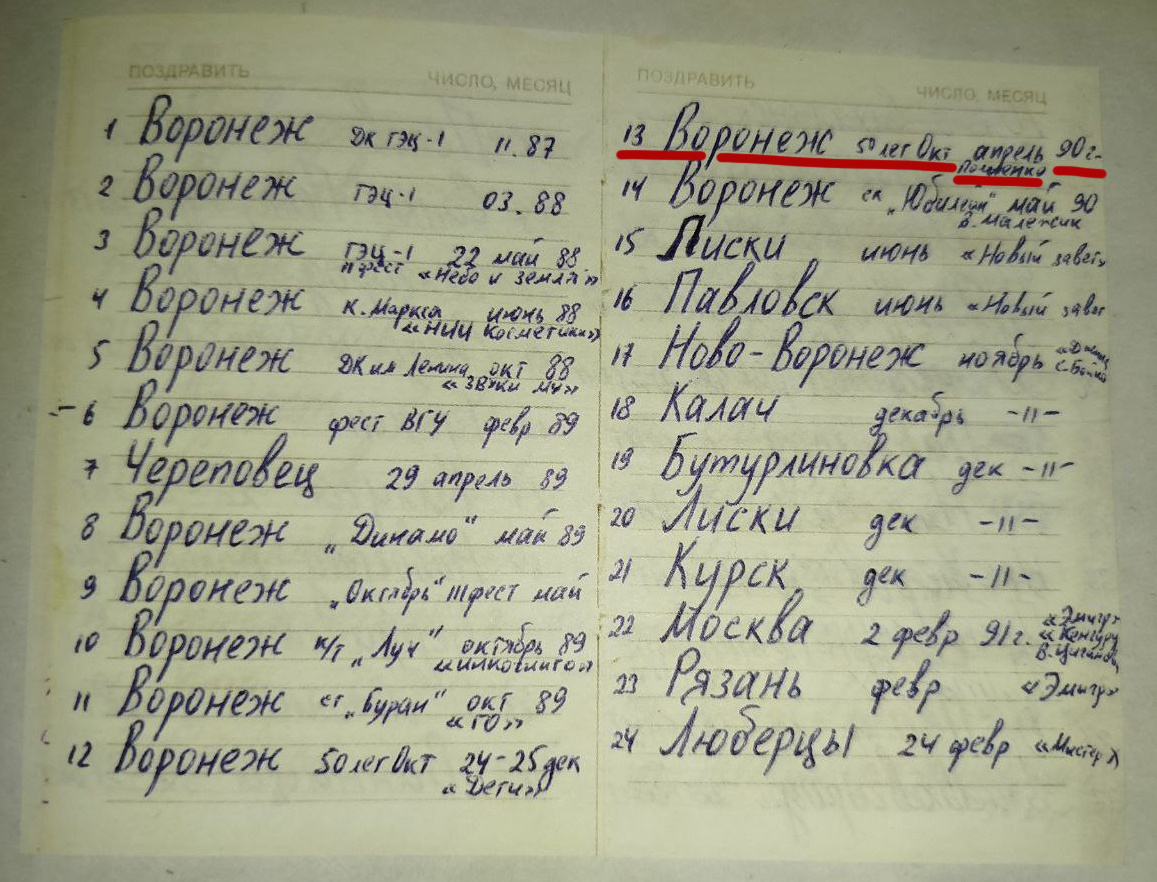 ПОЗДРАВИТЬ ЧИСЛО, МЕСЯЦ
1 Воронеж ДК ГЭЦ-1 11.87
2 Воронеж ГЭЦ-1 03.88
3 Воронеж ТЭЦ-1 22 май 88
фест «Небо и земля»
4 Воронеж К. Маркса июнь 88
«НИИ Косметики»
5 Воронеж ДК им Ленина окт 88
«Звуки му»
6 Воронеж фест ВГУ февр 89
7 Череповец 29 апрель 89
8 Воронеж „Динамо" май 89
9 Воронеж „Октябрь" III фест май
10 Воронеж к/т „Луч" октябрь 89
11 Воронеж ст „Буран" окт 89
«ГО»
12 Воронеж 50 лет Окт 24-25 дек
«Дети»
ПОЗДРАВИТЬ ЧИСЛО, МЕСЯЦ
13 Воронеж 50 лет Окт апрель 90 г.
14 Воронеж ск „Юбилейн" май 90
В. Малежик
15 Лиски июнь «Новый завет»
16 Павловск июнь «Новый завет
17 Ново-Воронеж ноябрь
18 Калач декабрь -11-
19 Бутурлиновка дек -11-
20 Лиски дек -11-
21 Курск дек -11-
22 Москва 2 февр 91 г. «Эмигр»
«Кенгуру
23 Рязань февр «Эмигр»
24 Люберцы 24 февр «Мистер Х